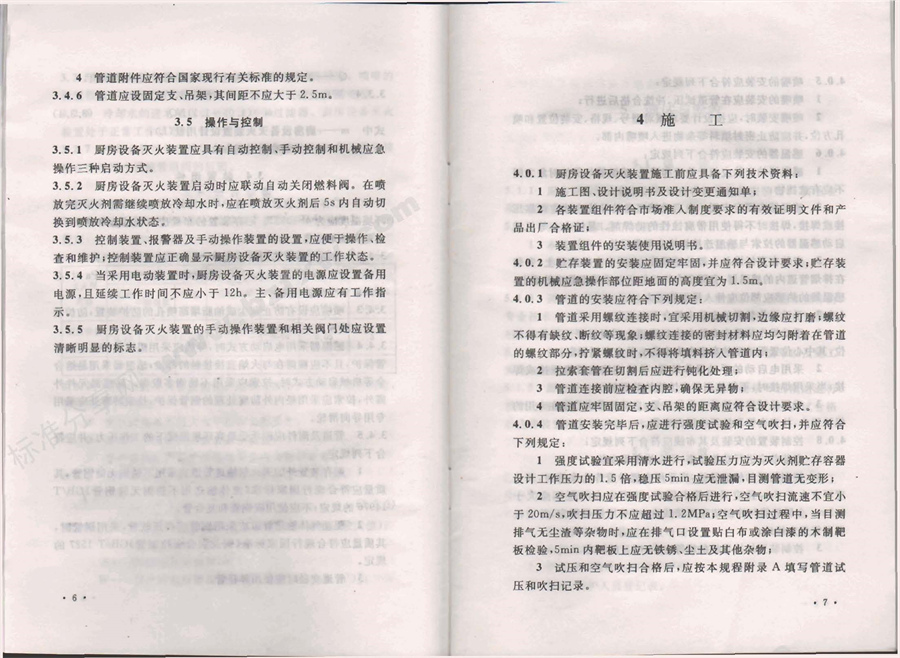 4 管道附件应符合国家现行有关标准的规定。
3.4.6 管道应设固定支、吊架,其间距不应大于2.5m。
3.5 操作与控制
3.5.1 厨房设备灭火装置应具有自动控制、手动控制和机械应急
操作三种启动方式。
3.5.2 厨房设备灭火装置启动时应联动自动关闭燃料阀。在喷
放完灭火剂需继续喷放冷却水时,应在喷放灭火剂后5s内自动切
换到喷放冷却水状态。
3.5.3 控制装置、报警器及手动操作装置的设置,应便于操作、检
查和维护;控制装置应正确显示厨房设备灭火装置的工作状态。
3.5.4 当采用电动装置时,厨房设备灭火装置的电源应设置备用
电源,且延续工作时间不应小于12h。主、备用电源应有工作指
示。
3.5.5 厨房设备灭火装置的手动操作装置和相关阀门处应设置
清晰明显的标志。
· 6 ·
4 施 工
4.0.1 厨房设备灭火装置施工前应具备下列技术资料:
1 施工图、设计说明书及设计变更通知单;
2 各装置组件符合市场准入制度要求的有效证明文件和产
品出厂合格证;
3 装置组件的安装使用说明书。
4.0.2 贮存装置的安装应固定牢固,并应符合设计要求;贮存装
置的机械应急操作部位距地面的高度宜为1.5m。
4.0.3 管道的安装应符合下列规定:
1 管道采用螺纹连接时,宜采用机械切割,边缘应打磨;螺纹
不得有缺纹、断纹等现象;螺纹连接的密封材料应均匀附着在管道
的螺纹部分,拧紧螺纹时,不得将填料挤入管道内;
2 拉索套管在切割后应进行钝化处理;
3 管道连接前应检查内腔,确保无异物;
4 管道应牢固固定,支、吊架的距离应符合设计要求。
4.0.4 管道安装完毕后,应进行强度试验和空气吹扫,并应符合
下列规定:
1 强度试验宜采用清水进行,试验压力应为灭火剂贮存容器
设计工作压力的1.5倍,稳压5min应无泄漏,目测管道无变形;
2 空气吹扫应在强度试验合格后进行,空气吹扫流速不宜小
于20m/s,吹扫压力不应超过1.2MPa;空气吹扫过程中,当目测
排气无尘渣等杂物时,应在排气口设置贴白布或涂白漆的木制靶
板检验,5min内靶板上应无铁锈、尘土及其他杂物;
3 试压和空气吹扫合格后,应按本规程附录A填写管道试
压和吹扫记录。
· 7 ·